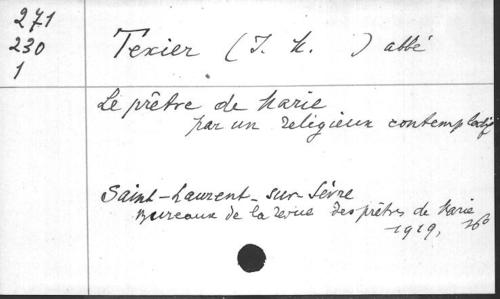 271
230
1
Texier (J. M. ) abbé
Le prêtre de Marie
par un religieux contemplatif
Saint-Laurent-sur-Sèvre
Bureaux de la revue des prêtres de Marie
1919, 16°